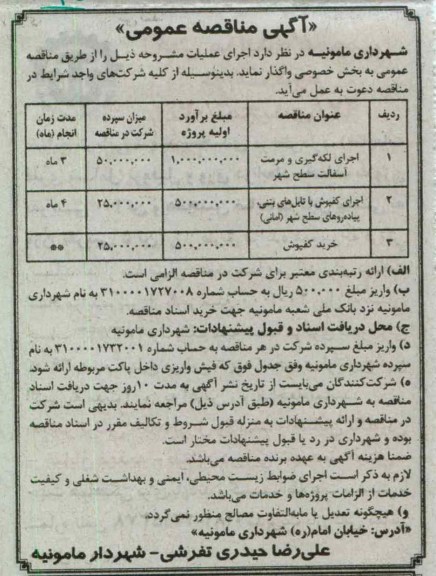 «آگهی مناقصه عمومی»
شهرداری مامونیه در نظر دارد اجرای عملیات مشروحه ذیل را از طریق مناقصه
عمومی به بخش خصوصی واگذار نماید. بدینوسیله از کلیه شرکت‌های واجد شرایط در
مناقصه دعوت به عمل می‌آید.
ردیف عنوان مناقصه مبلغ برآورد اولیه پروژه میزان سپرده شرکت در مناقصه مدت زمان انجام (ماه)
۱ اجرای لکه‌گیری و مرمت آسفالت سطح شهر ۱,۰۰۰,۰۰۰,۰۰۰ ۵۰,۰۰۰,۰۰۰ ۳ ماه
۲ اجرای کفپوش با تایل‌های بتنی، پیاده‌روهای سطح شهر (امانی) ۵۰۰,۰۰۰,۰۰۰ ۲۵,۰۰۰,۰۰۰ ۴ ماه
۳ خرید کفپوش ۵۰۰,۰۰۰,۰۰۰ ۲۵,۰۰۰,۰۰۰ **
الف) ارائه رتبه‌بندی معتبر برای شرکت در مناقصه الزامی است.
ب) واریز مبلغ ۵۰۰,۰۰۰ ریال به حساب شماره ۳۱۰۰۰۰۱۷۲۷۰۰۸ به نام شهرداری
مامونیه نزد بانک ملی شعبه مامونیه جهت خرید اسناد مناقصه.
ج) محل دریافت اسناد و قبول پیشنهادات: شهرداری مامونیه
د) واریز مبلغ سپرده شرکت در هر مناقصه به حساب شماره ۳۱۰۰۰۰۱۷۳۲۰۰۱ به نام
سپرده شهرداری مامونیه وفق جدول فوق که فیش واریزی داخل پاکت مربوطه ارائه شود.
ه) شرکت‌کنندگان می‌بایست از تاریخ نشر آگهی به مدت ۱۰روز جهت دریافت اسناد
مناقصه به شهرداری مامونیه (طبق آدرس ذیل) مراجعه نمایند. بدیهی است شرکت
در مناقصه و ارائه پیشنهادات به منزله قبول شروط و تکالیف مقرر در اسناد مناقصه
بوده و شهرداری در رد یا قبول پیشنهادات مختار است.
ضمنا هزینه آگهی به عهده برنده مناقصه می‌باشد.
لازم به ذکر است اجرای ضوابط زیست محیطی، ایمنی و بهداشت شغلی و کیفیت
خدمات از الزامات پروژه‌ها و خدمات می‌باشد.
و) هیچگونه تعدیل یا مابه‌التفاوت مصالح منظور نمی‌گردد.
«آدرس: خیابان امام(ره) شهرداری مامونیه»
علی‌رضا حیدری تفرشی- شهردار مامونیه